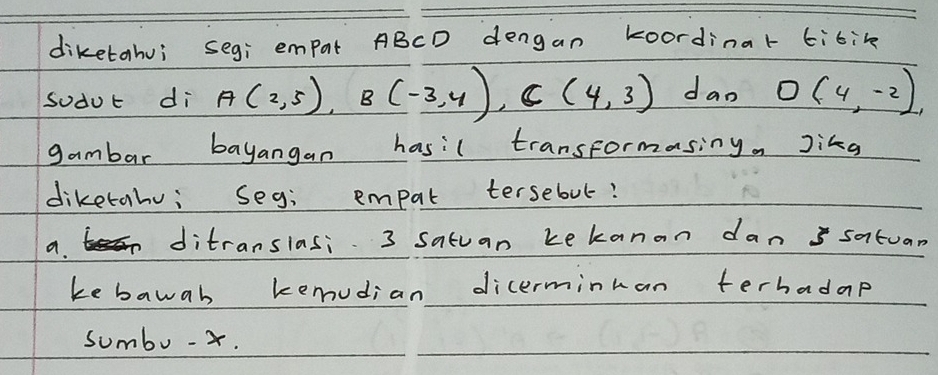 diketahui segi empat ABCD dengan koordinat titik
sudut di A (2,5), B (-3,4), C (4,3) dan D (4,-2),
gambar bayangan hasil transformasinya jika
diketahui segi empat tersebut:
a. ditranslasi 3 satuan ke kanan dan satuan
ke bawah kemudian dicerminkan terhadap
sumbu - x.